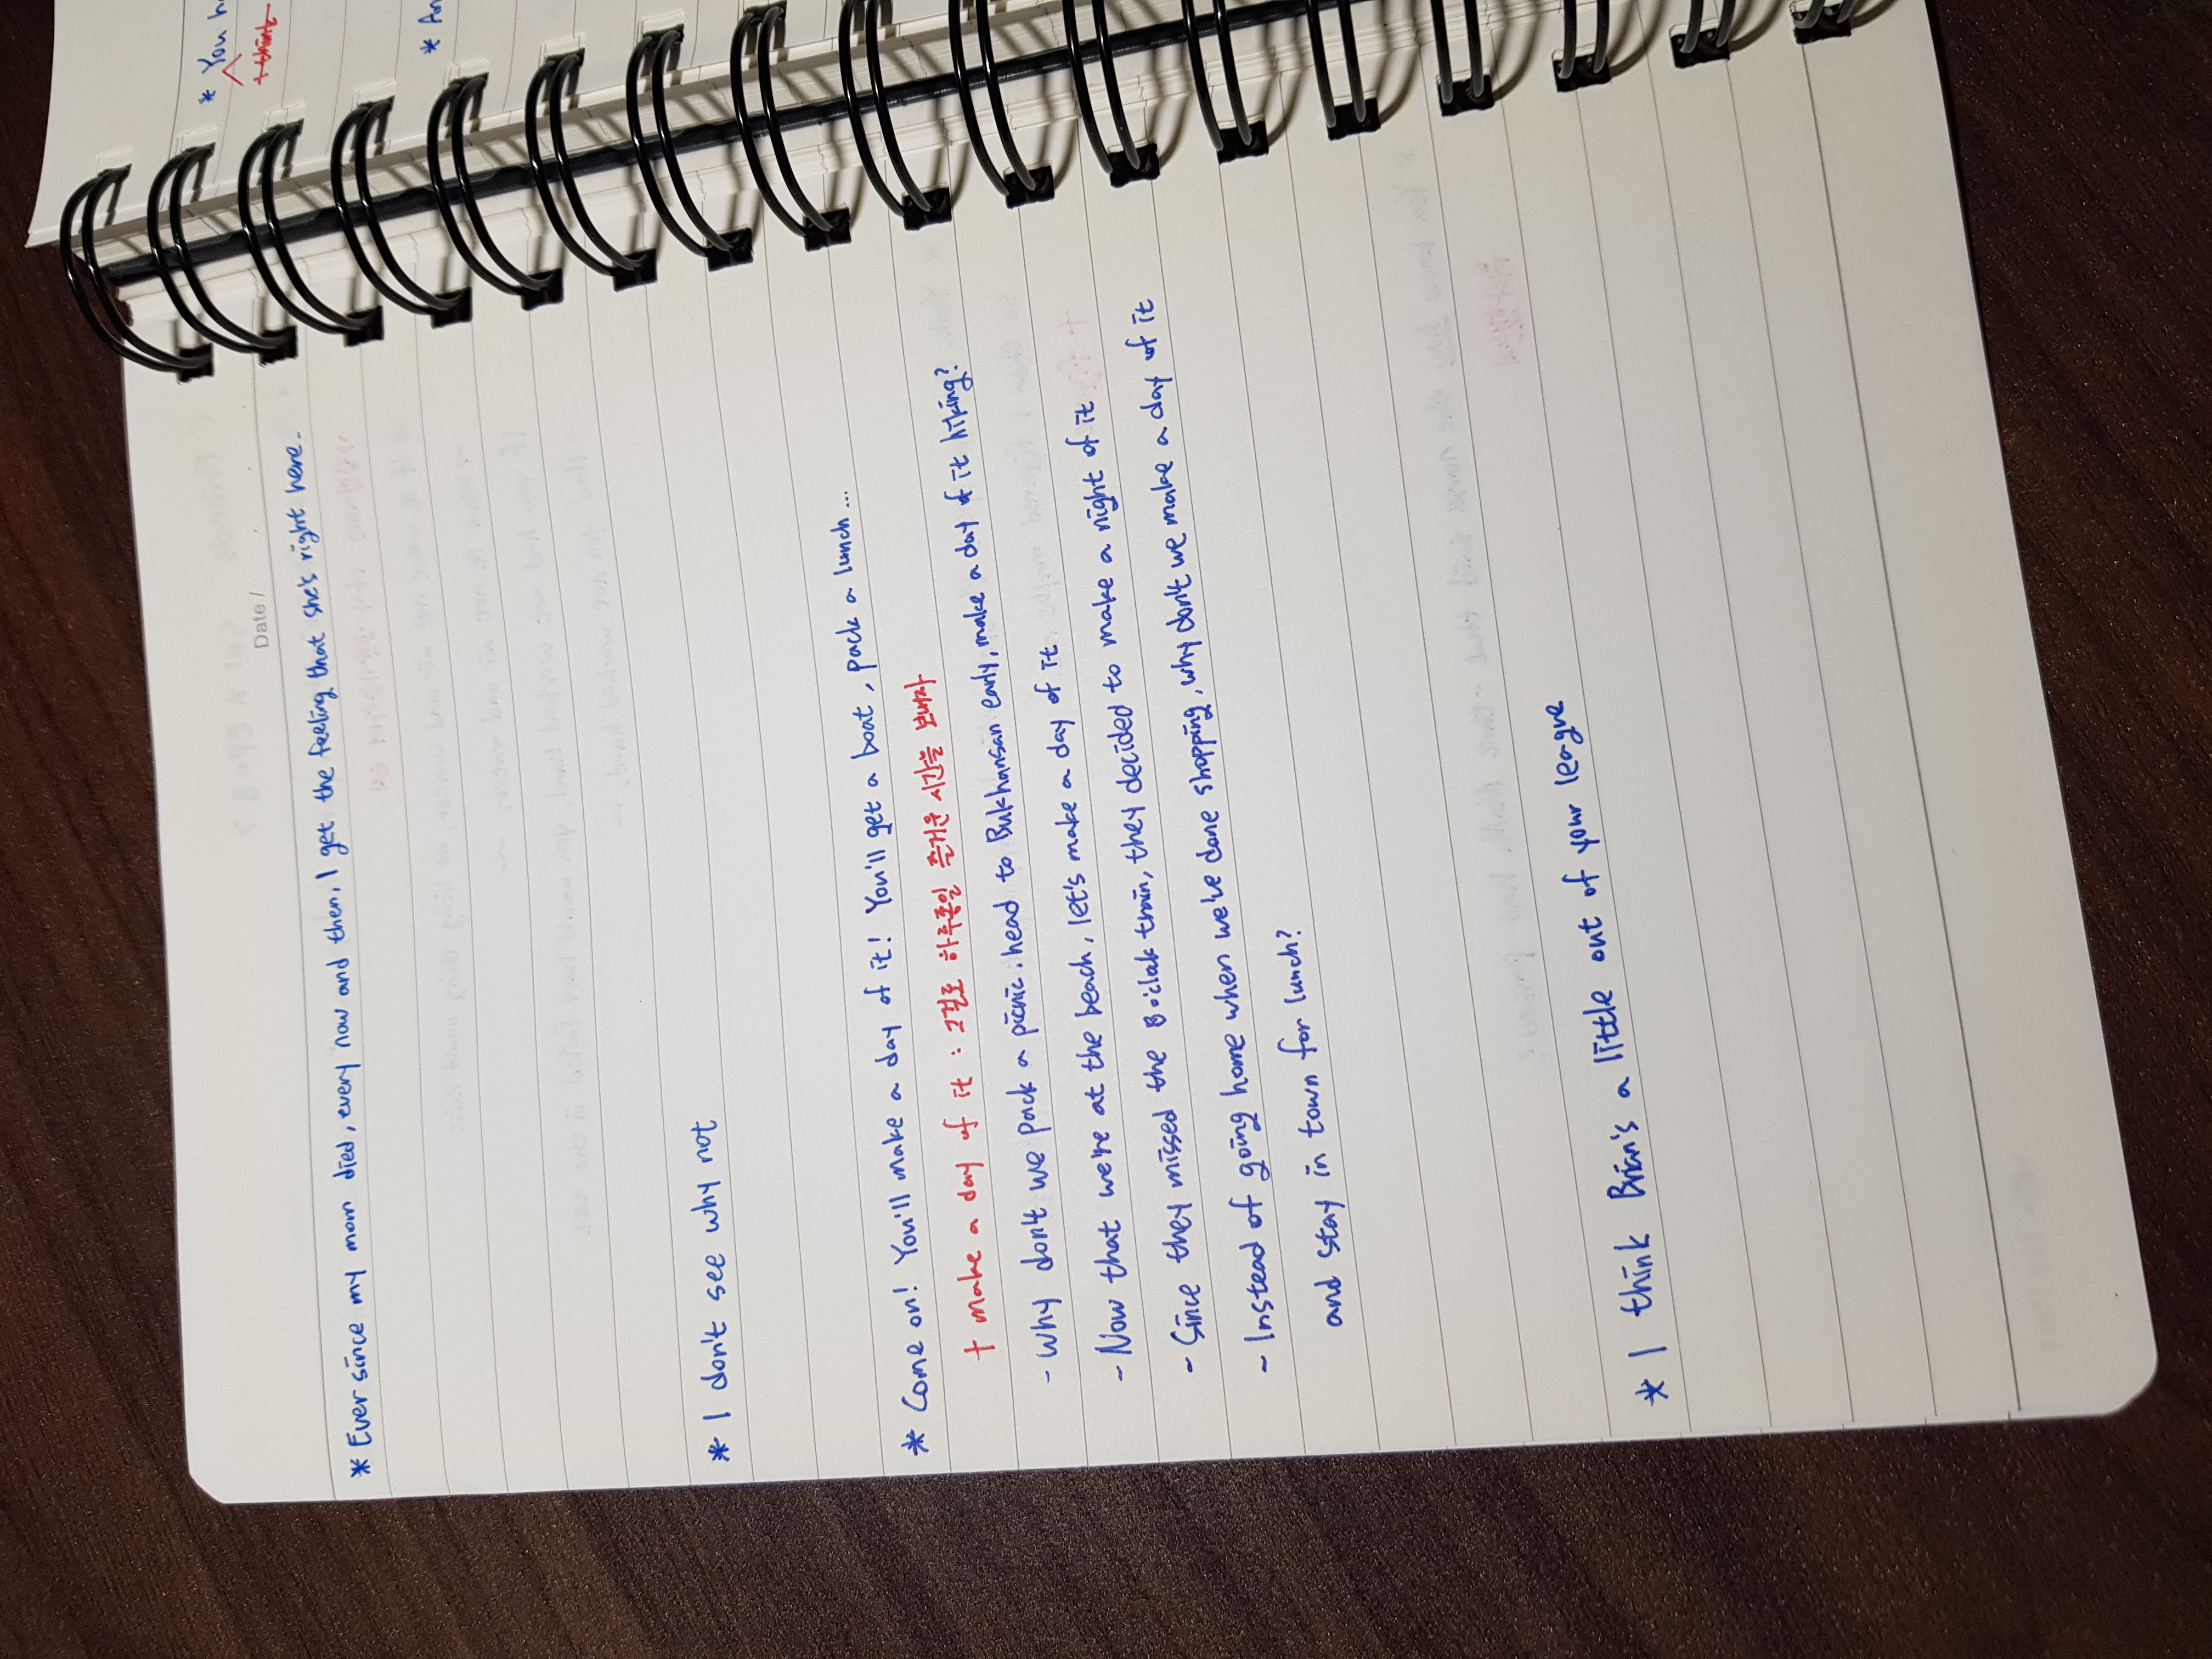 Date /
* Ever since my mom died, every now and then, I get the feeling that she's right here.
* I don't see why not
* Come on! You'll make a day of it! You'll get a boat, pack a lunch...
+ make a day of it : 그걸로 하루종일 즐거운 시간을 보내자
- Why don't we pack a picnic, head to Bukhansan early, make a day of it hiking?
- Now that we're at the beach, let's make a day of it
- Since they missed the 8 o'clok train, they decided to make a night of it
- Instead of going home when we've done shopping, why don't we make a day of it
and stay in town for lunch?
* I think Brian's a little out of your league
* You
* An